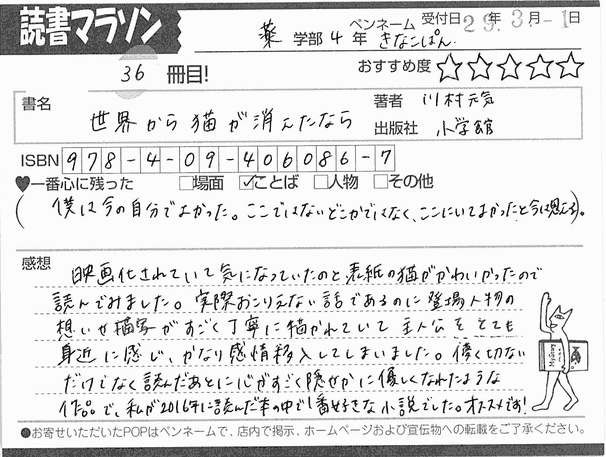 読書マラソン
薬 学部 4 年 ペンネーム きなこぱん 受付日 29年 3月-1日
36 冊目! おすすめ度 ☆☆☆☆☆
書名 世界から猫が消えたなら
著者 川村元気
出版社 小学館
ISBN 978-4-09-406086-7
♥一番心に残った □場面 ☑ことば □人物 □その他
(僕は今の自分でよかった。ここではないどこかではなく、ここにいてよかったと今は思える。)
感想
映画化されていて気になっていたのと表紙の猫がかわいかったので
読んでみました。実際おこりえない話であるのに登場人物の
想いや描写がすごく丁寧に描かれていて主人公をとても
身近に感じ、かなり感情移入してしまいました。儚く切ない
だけでなく読んだあとに心がすごく隠やかに優しくなれたような
作品で、私が2016年に読んだ本の中で1番好きな小説でした。オススメです!
●お寄せいただいたPOPはペンネームで、店内で掲示、ホームページおよび宣伝物への転載をご了承ください。